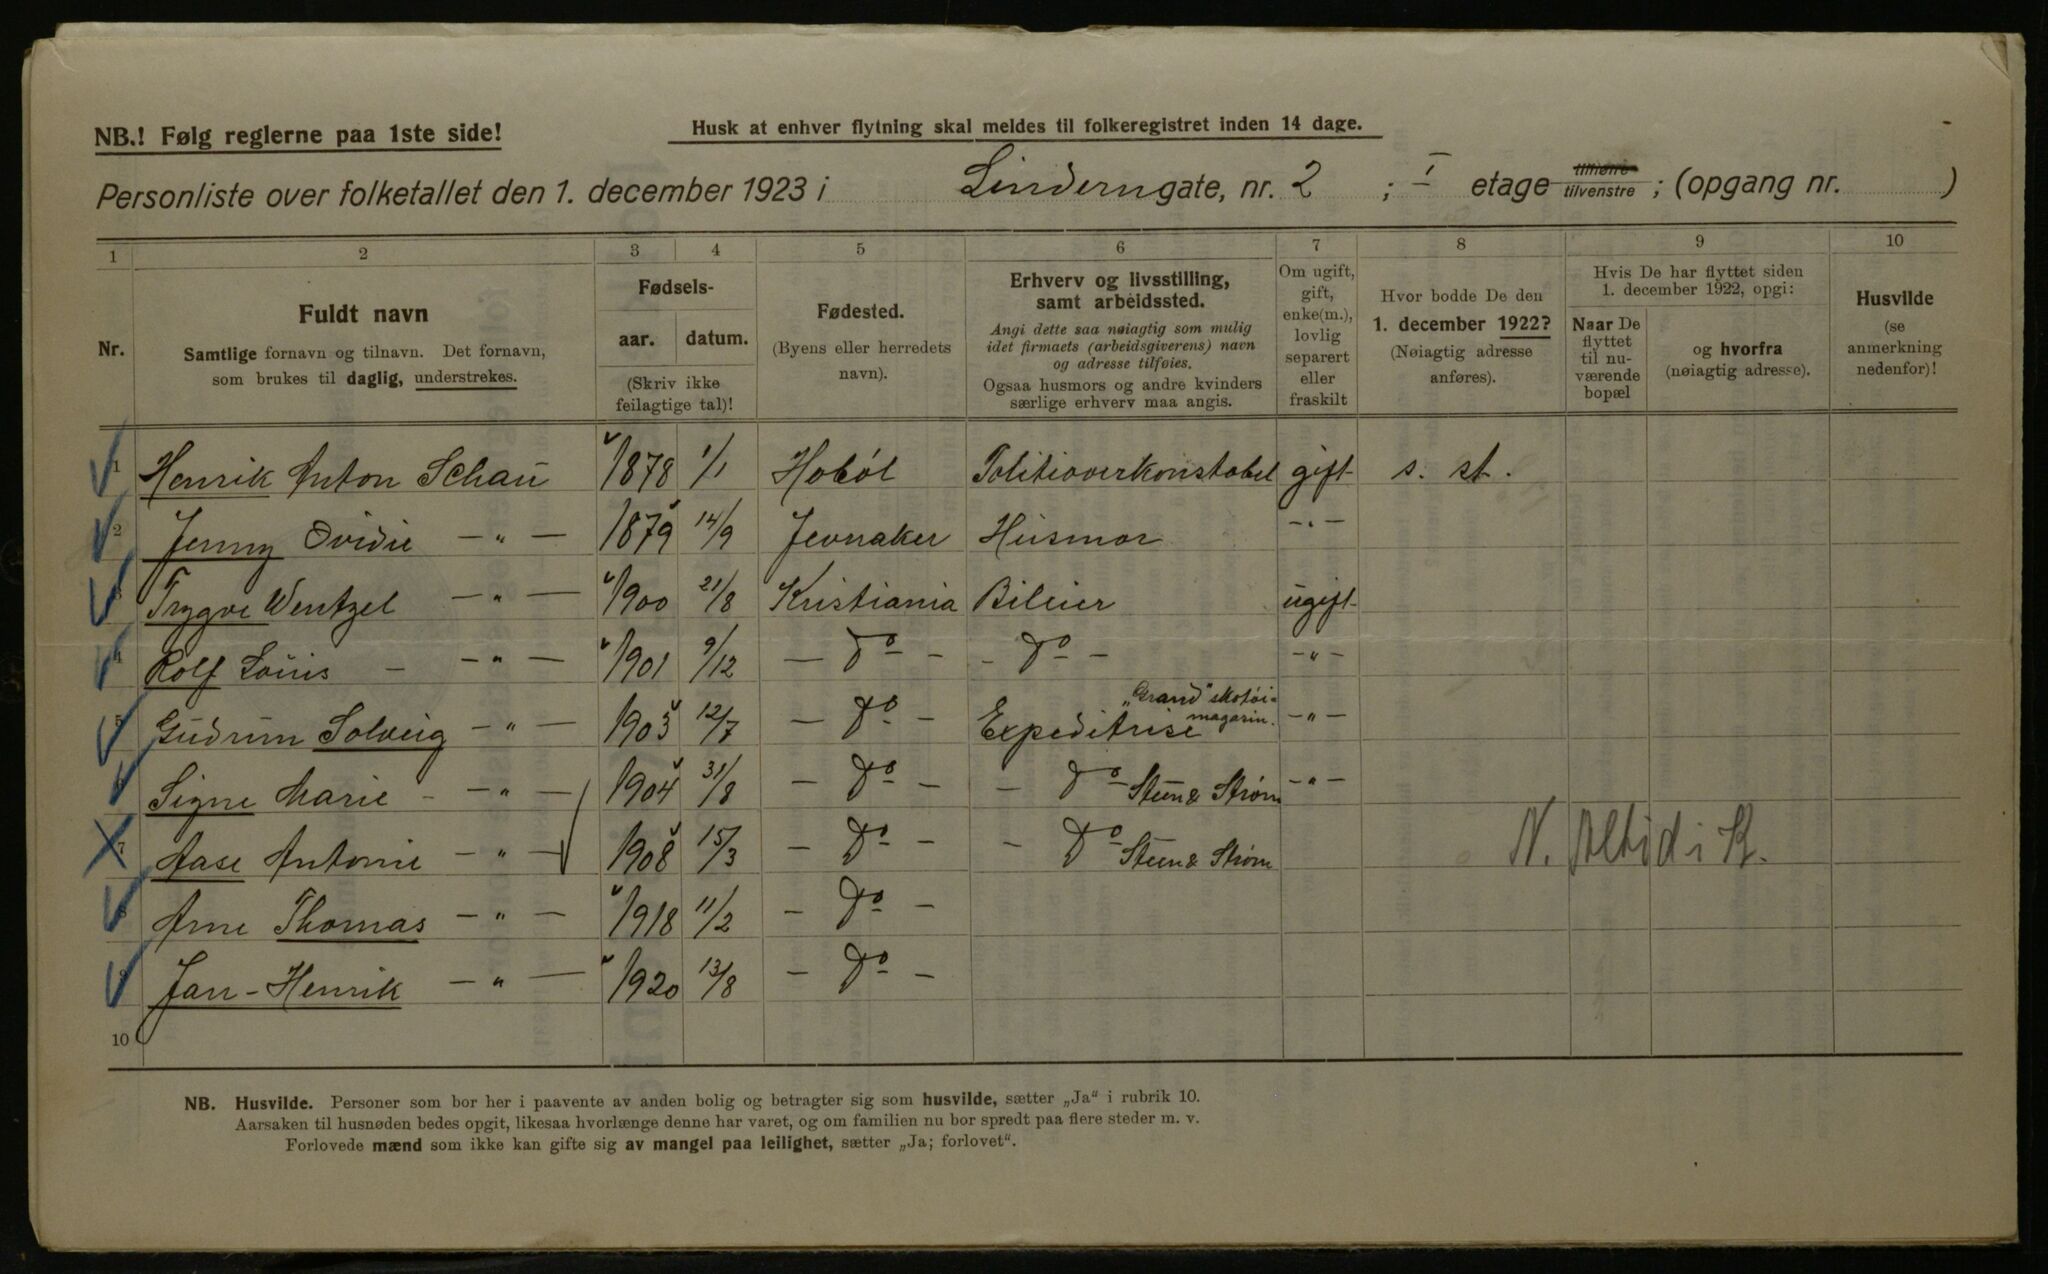 NB.! Følg reglerne paa 1ste side!
Husk at enhver flytning skal meldes til folkeregistret inden 14 dage.
Personliste over folketallet den 1. december 1923 i Linderngate, nr. 2 ; I etage tilhøire tilvenstre ; (opgang nr. )
1 2 3 4 5 6 7 8 9 10
Nr.
Fuldt navn
Samtlige fornavn og tilnavn. Det fornavn,
som brukes til daglig, understrekes.
Fødsels-
aar. datum.
(Skriv ikke
feilagtige tal)!
Fødested.
(Byens eller herredets
navn).
Erhverv og livsstilling,
samt arbeidssted.
Angi dette saa nøiagtig som mulig
idet firmaets (arbeidsgiverens) navn
og adresse tilføies.
Ogsaa husmors og andre kvinders
særlige erhverv maa angis.
Om ugift,
gift,
enke(m.),
lovlig
separert
eller
fraskilt
Hvor bodde De den
1. december 1922?
(Nøiagtig adresse
anføres).
Hvis De har flyttet siden
1. december 1922, opgi:
Naar De
flyttet
til nu-
værende
bopæl
og hvorfra
(nøiagtig adresse).
Husvilde
(se
anmerkning
nedenfor)!
1 Henrik Anton Schau 1878 1/1 Hobøl Politioverkonstabel gift s. st.
2 Jenny Ovidie — „ — 1879 14/9 Jevnaker Husmor — „ —
3 Trygve Wentzel — „ — 1900 21/8 Kristiania Bileier ugift
4 Rolf Louis — — „ — 1901 9/12 — Do — — Do — — „ —
5 Gudrun Solveig — „ — 1903 12/7 — Do — Expeditrise „Grand" skotøi= magasin. — „ —
6 Signe Marie — — „ — 1904 31/8 — Do — — Do — Steen & Strøm — „ —
7 Aase Antonie — „ — 1908 15/3 — Do — — Do Steen & Strøm N. Altid i K.
8 Arne Thomas — „ — 1918 11/2 — Do —
9 Jan-Henrik — „ — 1920 13/8 — Do —
10
NB. Husvilde. Personer som bor her i paavente av anden bolig og betragter sig som husvilde, sætter „Ja" i rubrik 10.
Aarsaken til husnøden bedes opgit, likesaa hvorlænge denne har varet, og om familien nu bor spredt paa flere steder m. v.
Forlovede mænd som ikke kan gifte sig av mangel paa leilighet, sætter „Ja; forlovet".